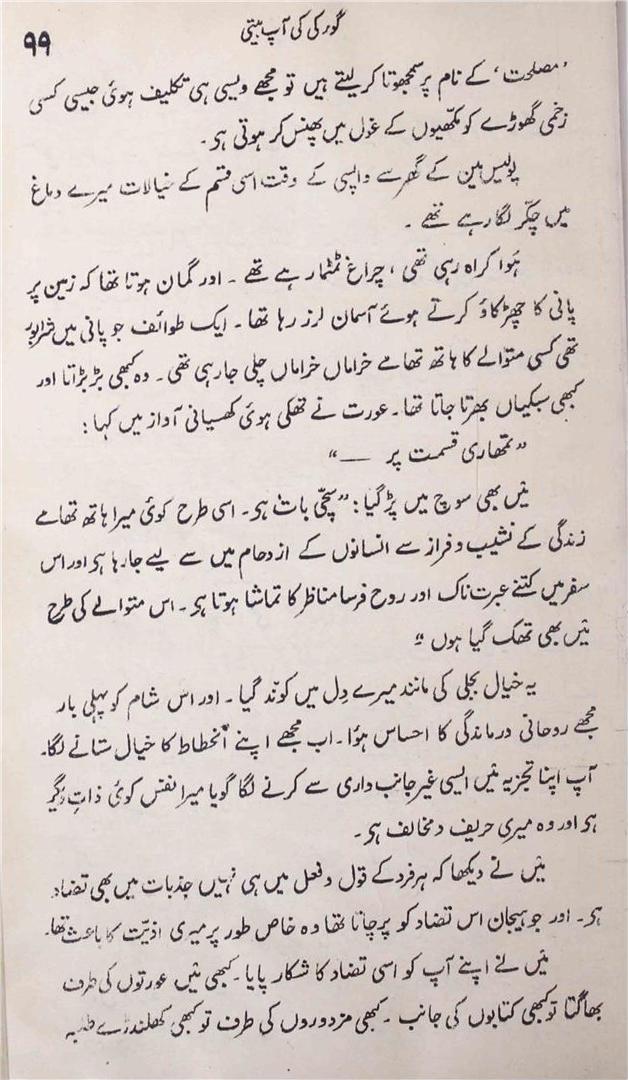 گورکی کی آپ بیتی
۹۹
'مصلحت' کے نام پر سمجھوتا کر لیتے ہیں تو مجھے ویسی ہی تکلیف ہوئی جیسی کسی
زخمی گھوڑے کو مکھیوں کے غول میں پھنس کر ہوتی ہی۔
پولیس مین کے گھر سے واپسی کے وقت اسی قسم کے خیالات میرے دماغ
میں چکّر لگا رہے تھے۔
ہَوا کراہ رہی تھی، چراغ ٹمٹما رہے تھے۔ اور گمان ہوتا تھا کہ زمین پر
پانی کا چھڑکاؤ کرتے ہوئے آسمان لرز رہا تھا۔ ایک طوائف جو پانی میں شرابور
تھی کسی متوالے کا ہاتھ تھامے خراماں خراماں چلی جا رہی تھی۔ وہ کبھی بڑبڑاتا اور
کبھی سبکیاں بھرتا جاتا تھا۔ عورت نے تھکی ہوئی کھسیانی آواز میں کہا:
"تمھاری قسمت پر —"
مَیں بھی سوچ میں پڑ گیا: "سچّی بات ہی۔ اسی طرح کوئی میرا ہاتھ تھامے
زندگی کے نشیب و فراز سے انسانوں کے ازدحام میں سے لیے جا رہا ہی اور اس
سفر میں کتنے عبرت ناک اور روح فرسا مناظر کا تماشا ہوتا ہی۔ اس متوالے کی طرح
مَیں بھی تھک گیا ہوں"
یہ خیال بجلی کی مانند میرے دِل میں کوند گیا۔ اور اس شام کو پہلی بار
مجھے روحانی درماندگی کا احساس ہؤا۔ اب مجھے اپنے انحطاط کا خیال ستانے لگا۔
آپ اپنا تجزیہ مَیں ایسی غیر جانب داری سے کرنے لگا گویا میرا نفس کوئی ذاتِ دیگر
ہی اور وہ میری حریف و مخالف ہی۔
مَیں نے دیکھا کہ ہر فرد کے قول و فعل میں ہی نہیں جذبات میں بھی تضاد
ہی۔ اور جو ہیجان اس تضاد کو پرچاتا تھا وہ خاص طور پر میری اذیّت کا باعث تھا۔
مَیں نے اپنے آپ کو اسی تضاد کا شکار پایا۔ کبھی مَیں عورتوں کی طرف
بھاگتا تو کبھی کتابوں کی جانب۔ کبھی مزدوروں کی طرف تو کبھی کھلنڈرے طلبہ